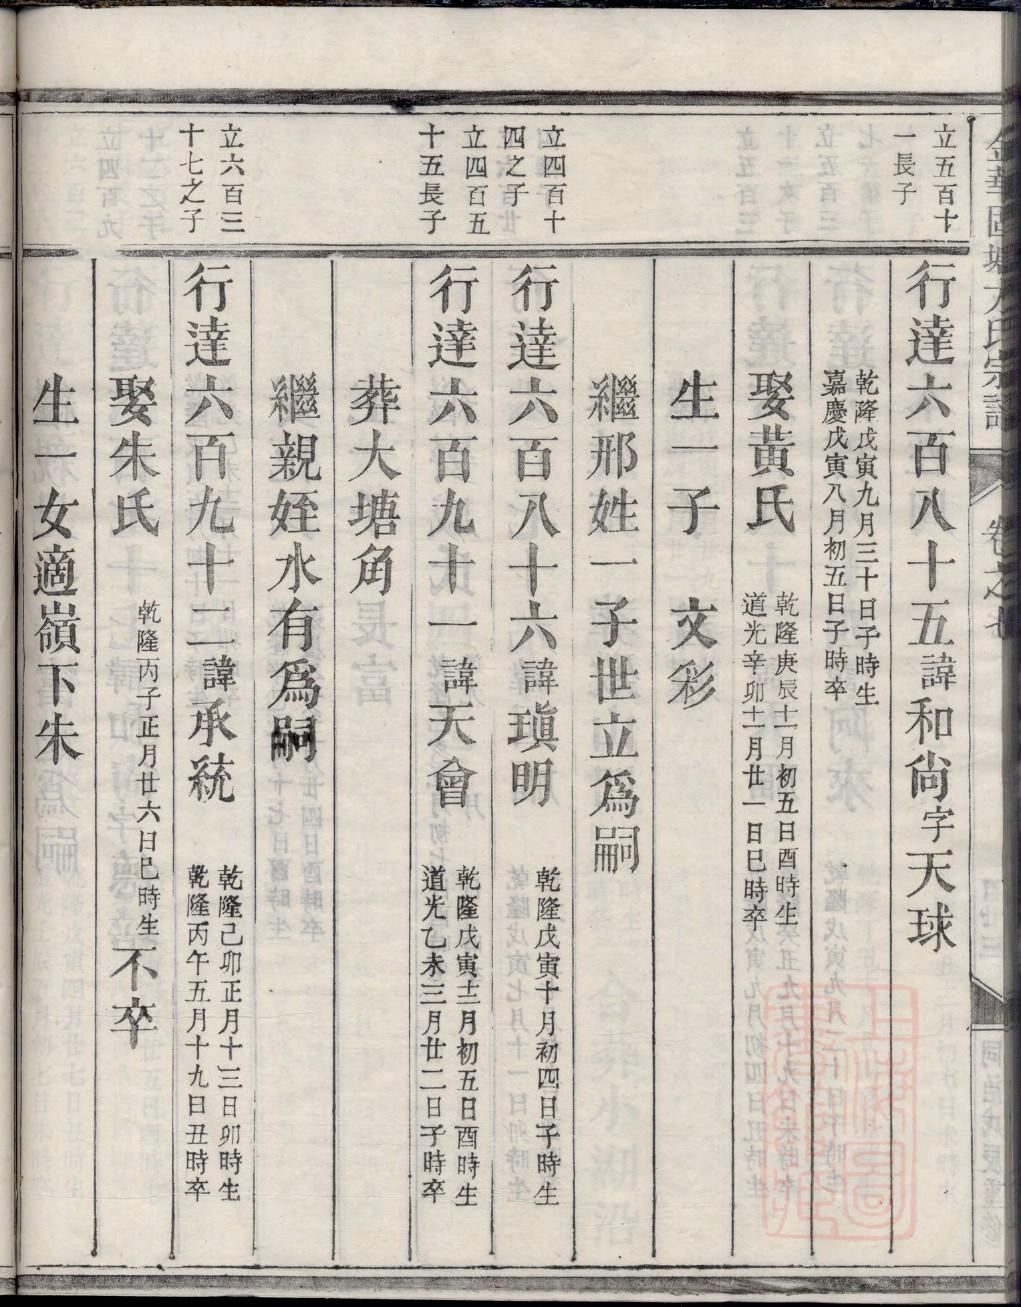 立五百十
一長子
行達六百八十五諱和尚字天球
乾隆戊寅九月三十日子時生
嘉慶戊寅八月初五日子時卒
娶黃氏
乾隆庚辰十一月初五日酉時生
道光辛卯十一月廿一日巳時卒
生一子 文彩
繼邢姓一子世立爲嗣
立四百十
四之子
行達六百八十六諱瑱明
乾隆戊寅十月初四日子時生
立四百五
十五長子
行達六百九十一諱天會
乾隆戊寅十二月初五日酉時生
道光乙未三月廿二日子時卒
葬大塘角
繼親姪水有爲嗣
立六百三
十七之子
行達六百九十二諱承統
乾隆己卯正月十三日卯時生
乾隆丙午五月十九日丑時卒
娶朱氏
乾隆丙子正月廿六日巳時生
不卒
生一女適嶺下朱